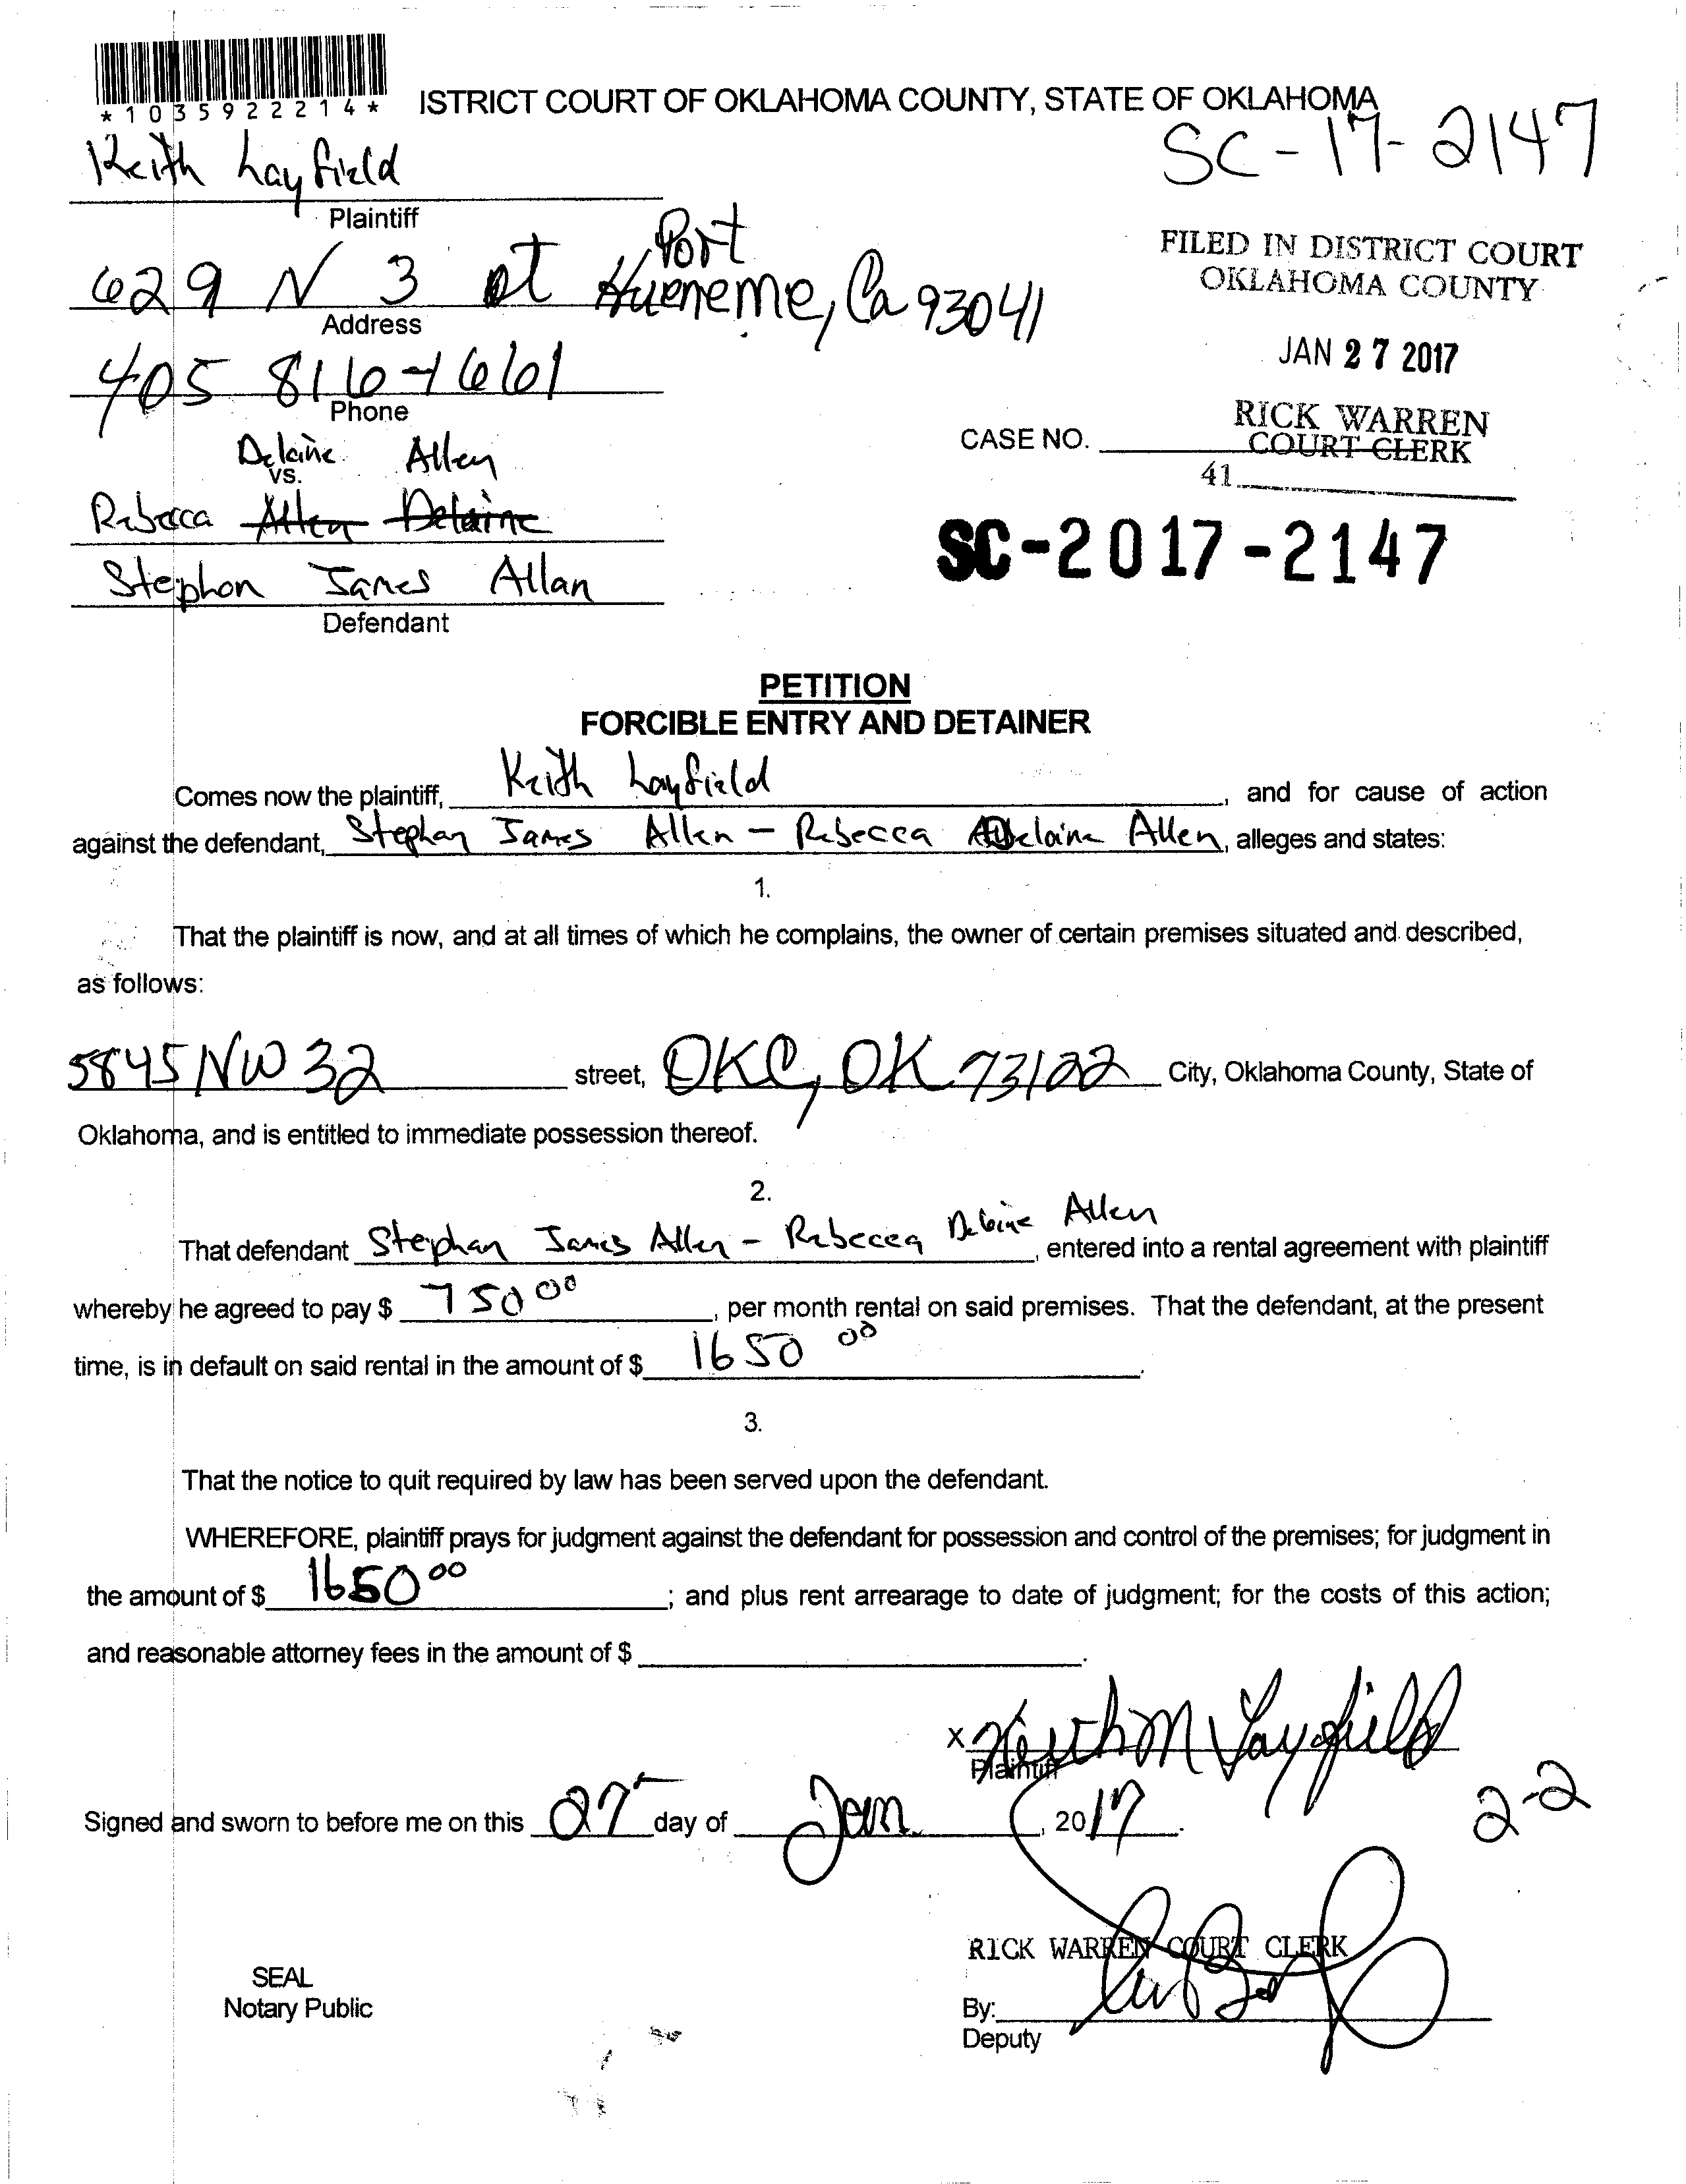 *1035922214*
ISTRICT COURT OF OKLAHOMA COUNTY, STATE OF OKLAHOMA
SC-17-2147
Keith Layfield
Plaintiff
629 N 3 st Port Hueneme, Ca 93041
Address
FILED IN DISTRICT COURT
OKLAHOMA COUNTY
JAN 27 2017
405 816-1661
Phone
RICK WARREN
COURT CLERK
CASE NO.
41
Delaine Allen
vs.
Rebecca Allen Delaine
Stephon James Allan
Defendant
SC-2017-2147
PETITION
FORCIBLE ENTRY AND DETAINER
Comes now the plaintiff, Keith Layfield, and for cause of action
against the defendant, Stephan James Allen - Rebecca Delaine Allen, alleges and states:
1.
That the plaintiff is now, and at all times of which he complains, the owner of certain premises situated and described,
as follows:
5845 NW 32 street, OKC, OK 73122 City, Oklahoma County, State of
Oklahoma, and is entitled to immediate possession thereof.
2.
That defendant Stephan James Allen - Rebecca Delaine Allen, entered into a rental agreement with plaintiff
whereby he agreed to pay $ 750 00, per month rental on said premises. That the defendant, at the present
time, is in default on said rental in the amount of $ 1650 00.
3.
That the notice to quit required by law has been served upon the defendant.
WHEREFORE, plaintiff prays for judgment against the defendant for possession and control of the premises; for judgment in
the amount of $ 1650 00; and plus rent arrearage to date of judgment; for the costs of this action;
and reasonable attorney fees in the amount of $ .
X Keith M Layfield
Plaintiff
Signed and sworn to before me on this 27 day of Jan, 2017.
2-2
RICK WARREN COURT CLERK
SEAL
Notary Public
By:
Deputy